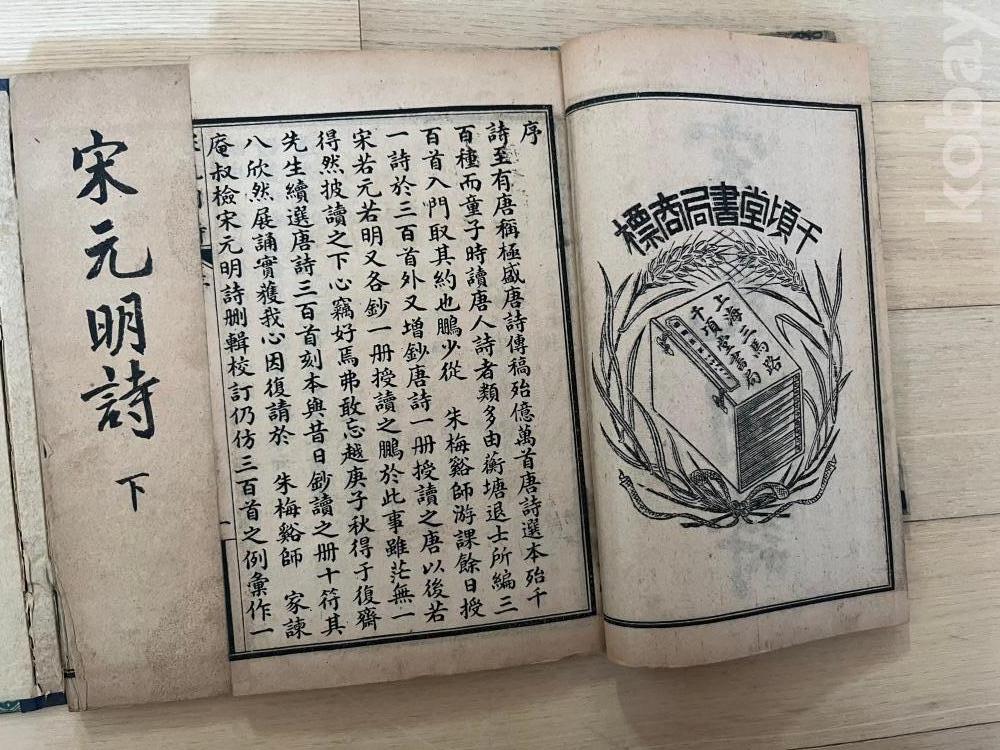 千頃堂書局商標
上海三馬路
千頃堂書局
序
詩至有唐稱極盛唐詩傳稿殆億萬首唐詩選本殆千
百種而童子時讀唐人詩者類多由蘅塘退士所編三
百首入門取其約也鵬少從 朱梅谿師游課餘日授
一詩於三百首外又增鈔唐詩一册授讀之唐以後若
宋若元若明又各鈔一册授讀之鵬於此事雖茫無一
得然披讀之下心竊好焉弗敢忘越庚子秋得于復齋
先生續選唐詩三百首刻本與昔日鈔讀之册十符其
八欣然展誦實獲我心因復請於 朱梅谿師 家諫
庵叔檢宋元明詩删輯校訂仍仿三百首之例彙作一
宋元明詩 下
kobay